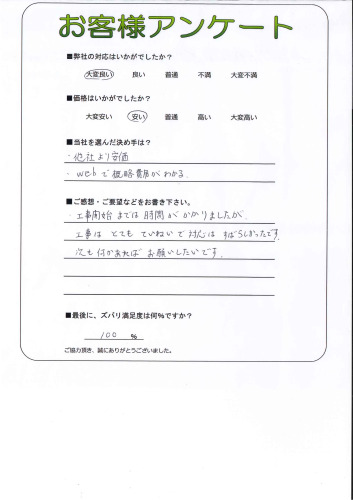 お客様アンケート
■弊社の対応はいかがでしたか？
大変良い 良い 普通 不満 大変不満
■価格はいかがでしたか？
大変安い 安い 普通 高い 大変高い
■当社を選んだ決め手は？
・他社より安価
・webで概略費用がわかる.
■ご感想・ご要望などをお書き下さい。
・工事開始までは時間がかかりましたが、
工事はとてもていねいで対応はすばらしかったです.
次も何かあればお願いしたいです.
■最後に、ズバリ満足度は何％ですか？
100 ％
ご協力頂き、誠にありがとうございました。